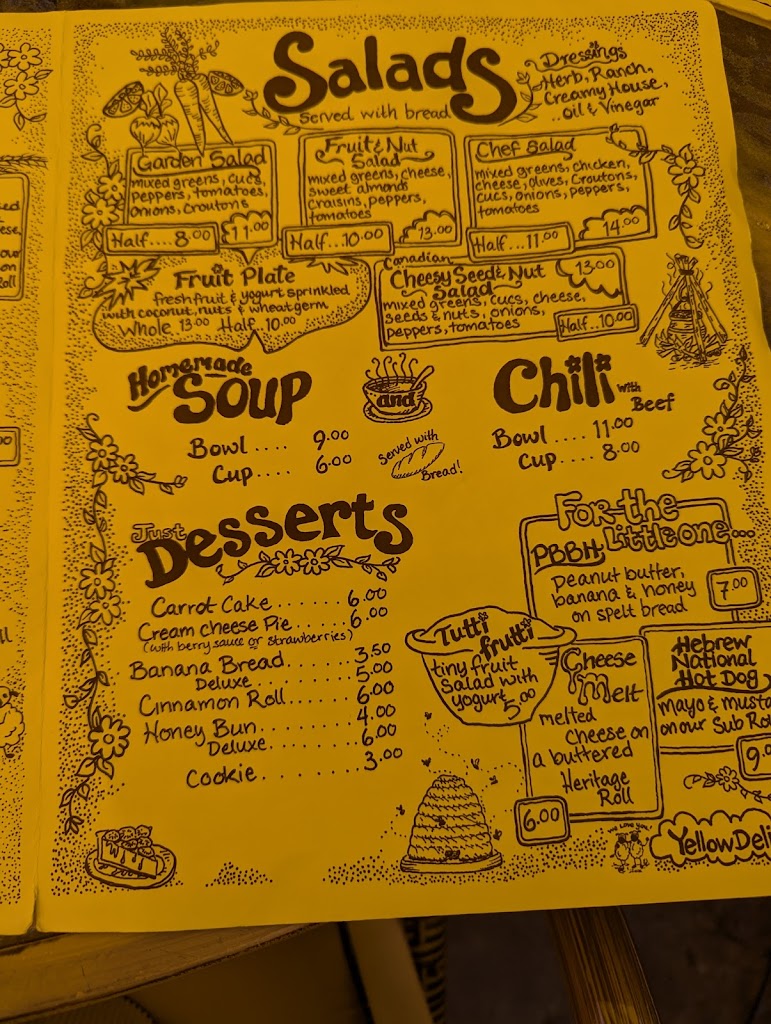 Salads
Served with bread
Dressings
Herb, Ranch,
Creamy House,
..Oil & Vinegar
Garden Salad
mixed greens, cucs,
peppers, tomatoes,
onions, croutons
Half....8.00
11.00
Fruit & Nut
Salad
mixed greens, cheese,
sweet almonds
craisins, peppers,
tomatoes
Half..10.00
13.00
Chef Salad
mixed greens, chicken,
cheese, olives, croutons,
cucs, onions, peppers,
tomatoes
Half...11.00
14.00
Fruit Plate
fresh fruit & yogurt sprinkled
with coconut, nuts & wheat germ
Whole 13.00 Half 10.00
Canadian
Cheesy Seed & Nut
Salad
13.00
mixed greens, cucs, cheese,
seeds & nuts, onions,
peppers, tomatoes
Half..10.00
Homemade
Soup
Bowl .... 9.00
Cup..... 6.00
and
Served with
Bread!
Chili with
Beef
Bowl .... 11.00
Cup.... 8.00
Just
Desserts
Carrot Cake....... 6.00
Cream cheese Pie... 6.00
(with berry sauce or strawberries)
Banana Bread...... 3.50
Deluxe........ 5.00
Cinnamon Roll..... 6.00
Honey Bun........ 4.00
Deluxe....... 6.00
Cookie......... 3.00
For the
Little one...
PBBH
peanut butter,
banana & honey
on spelt bread
7.00
Tutti
frutti
tiny fruit
Salad with
yogurt 5.00
Cheese
Melt
melted
cheese on
a buttered
Heritage
Roll
6.00
Hebrew
National
Hot Dog
mayo & musta
on our Sub Ro
9.0
we love you!
Yellow Deli